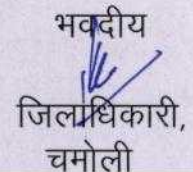 भवदीय
जिलाधिकारी,
चमोली